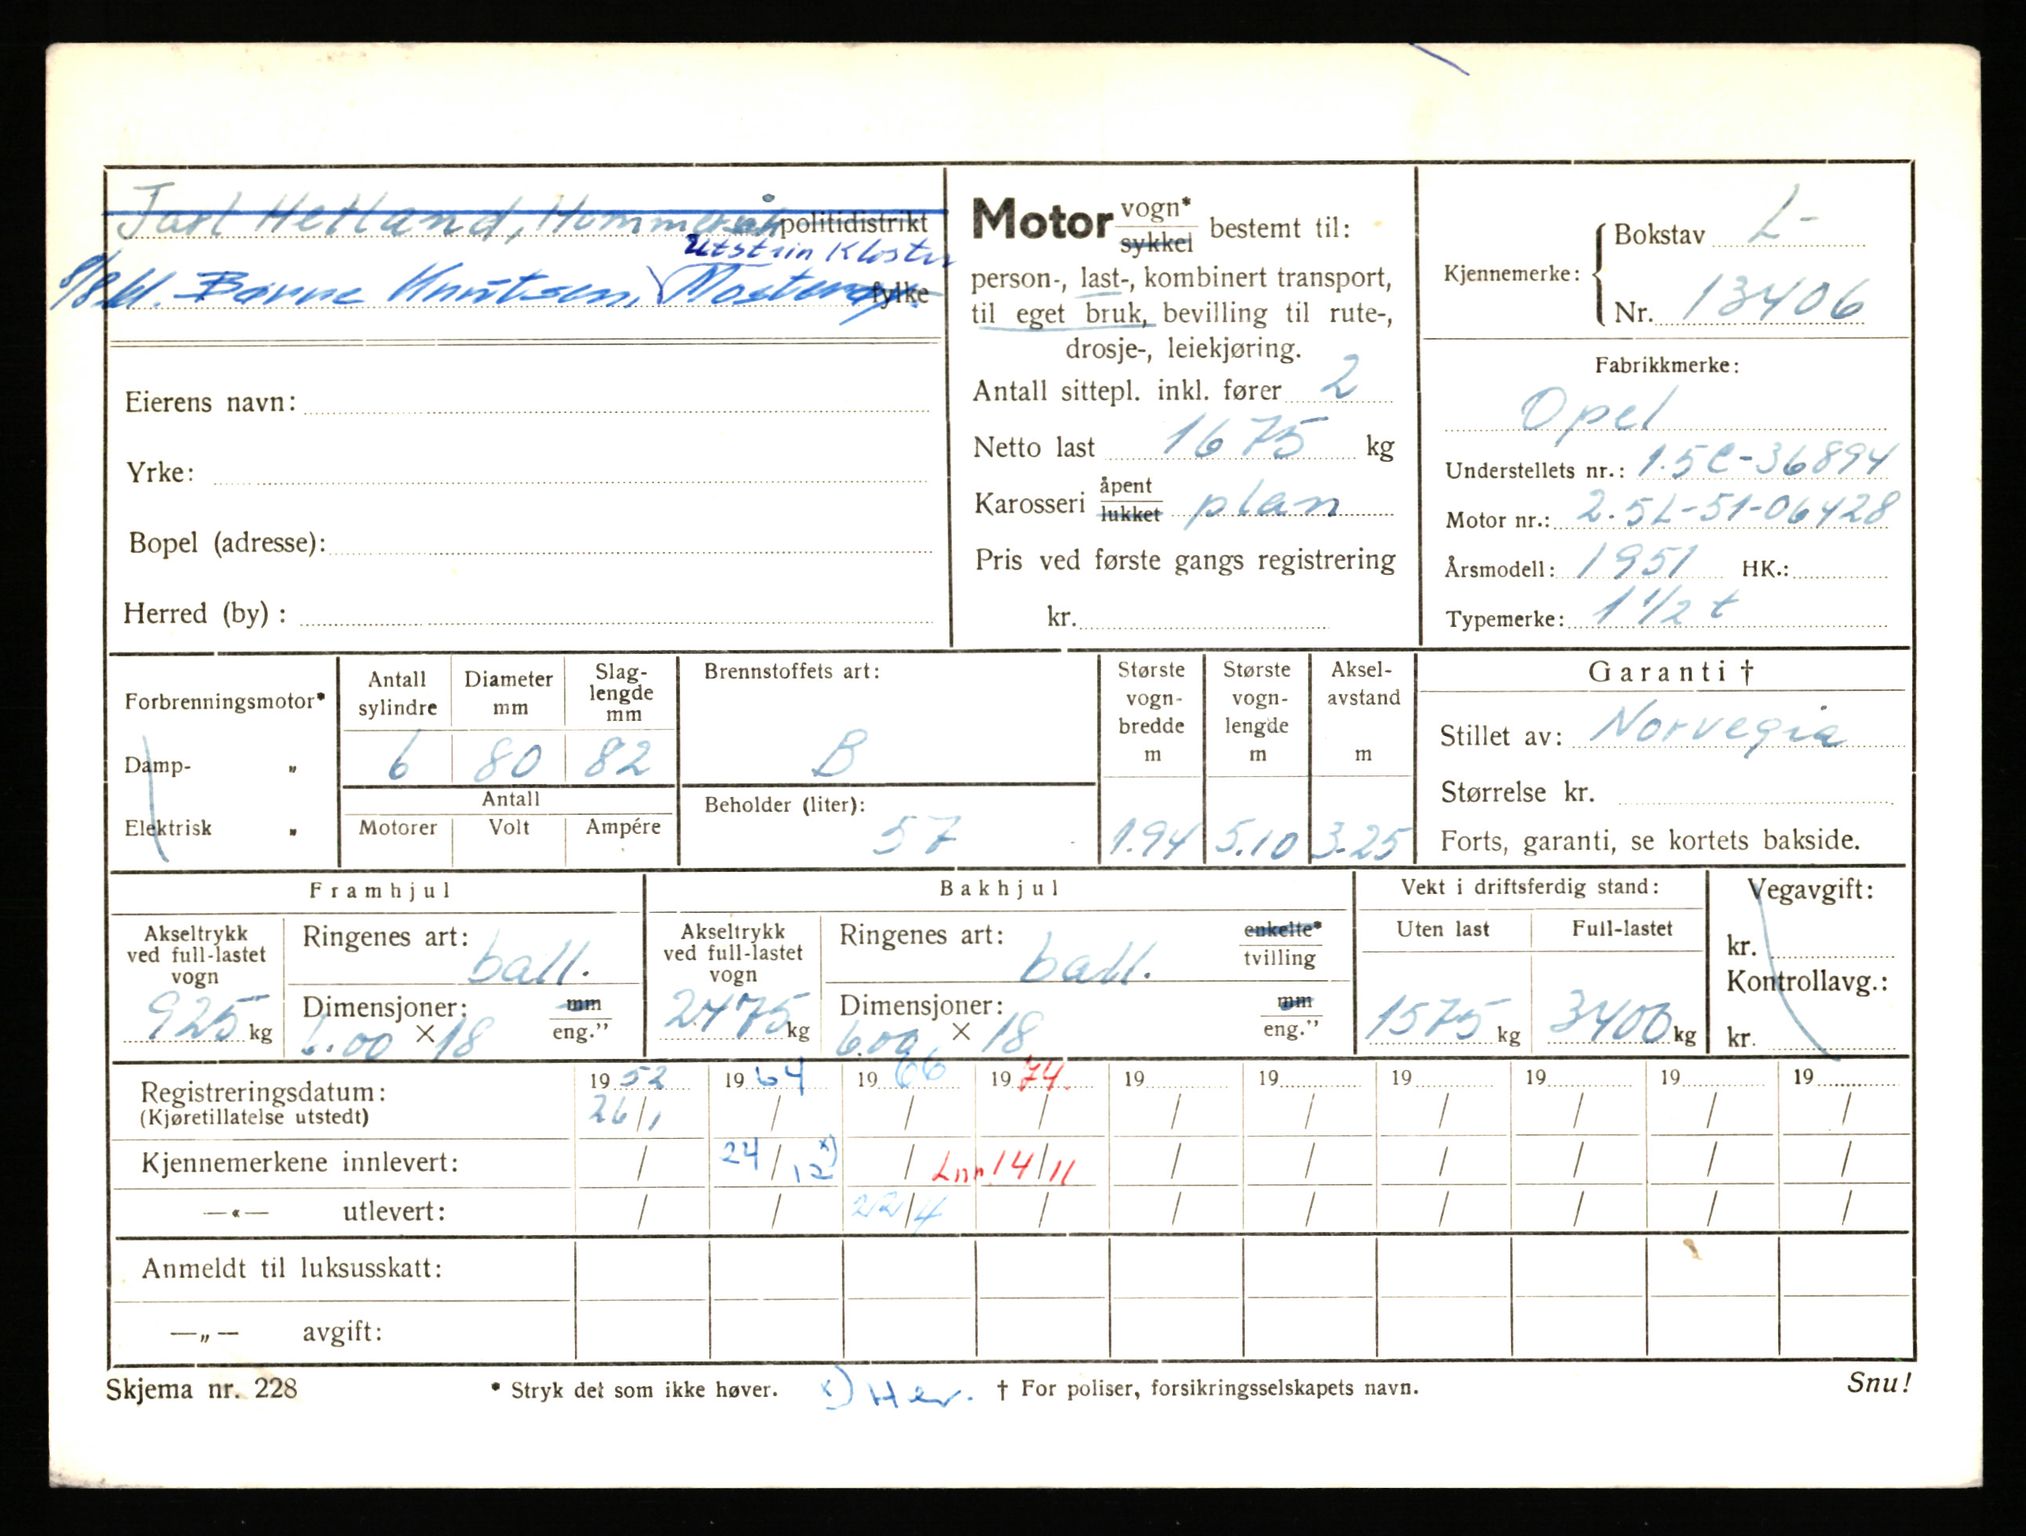 Jarl Hetland, Hommersåk politidistrikt
Utstein Kloster
Børne Knutsen, Mosterøy fylke
Eierens navn:
Yrke:
Bopel (adresse):
Herred (by) :
Motor vogn* sykkel bestemt til:
person-, last-, kombinert transport,
til eget bruk, bevilling til rute-,
drosje-, leiekjøring.
Antall sittepl. inkl. fører 2
Netto last 1675 kg
Karosseri åpent lukket plan
Pris ved første gangs registrering
kr.
Kjennemerke: Bokstav L-
Nr. 13406
Fabrikkmerke:
Opel
Understellets nr.: 1.5C-36894
Motor nr.: 2.5L-51-06428
Årsmodell: 1951 HK.:
Typemerke: 1 1/2 t
Forbrenningsmotor*
Damp- „
Elektrisk „
Antall sylindre Diameter mm Slag-lengde mm
6 80 82
Antall
Motorer Volt Ampére
Brennstoffets art:
B
Beholder (liter):
57
Største vogn-bredde m 1.94
Største vogn-lengde m 5.10
Aksel-avstand m 3.25
Garanti †
Stillet av: Norvegia
Størrelse kr.
Forts, garanti, se kortets bakside.
Framhjul
Akseltrykk ved full-lastet vogn
925 kg
Ringenes art: ball.
Dimensjoner: mm eng.”
6.00 × 18
Bakhjul
Akseltrykk ved full-lastet vogn
2475 kg
Ringenes art: ball. enkelte* tvilling
Dimensjoner: mm eng.”
6.00 × 18
Vekt i driftsferdig stand:
Uten last Full-lastet
1575 kg 3400 kg
Vegavgift:
kr.
Kontrollavg.:
kr.
Registreringsdatum: 1952 1964 1966 1974. 19 19 19 19 19 19
(Kjøretillatelse utstedt) 26/1 / / / / / / / / /
Kjennemerkene innlevert: / 24/12 x) / Lnr. 14/11 / / / / / /
—«— utlevert: / / 22/4 / / / / / / /
Anmeldt til luksusskatt:
—„— avgift:
Skjema nr. 228 * Stryk det som ikke høver. x) Her. † For poliser, forsikringsselskapets navn. Snu!